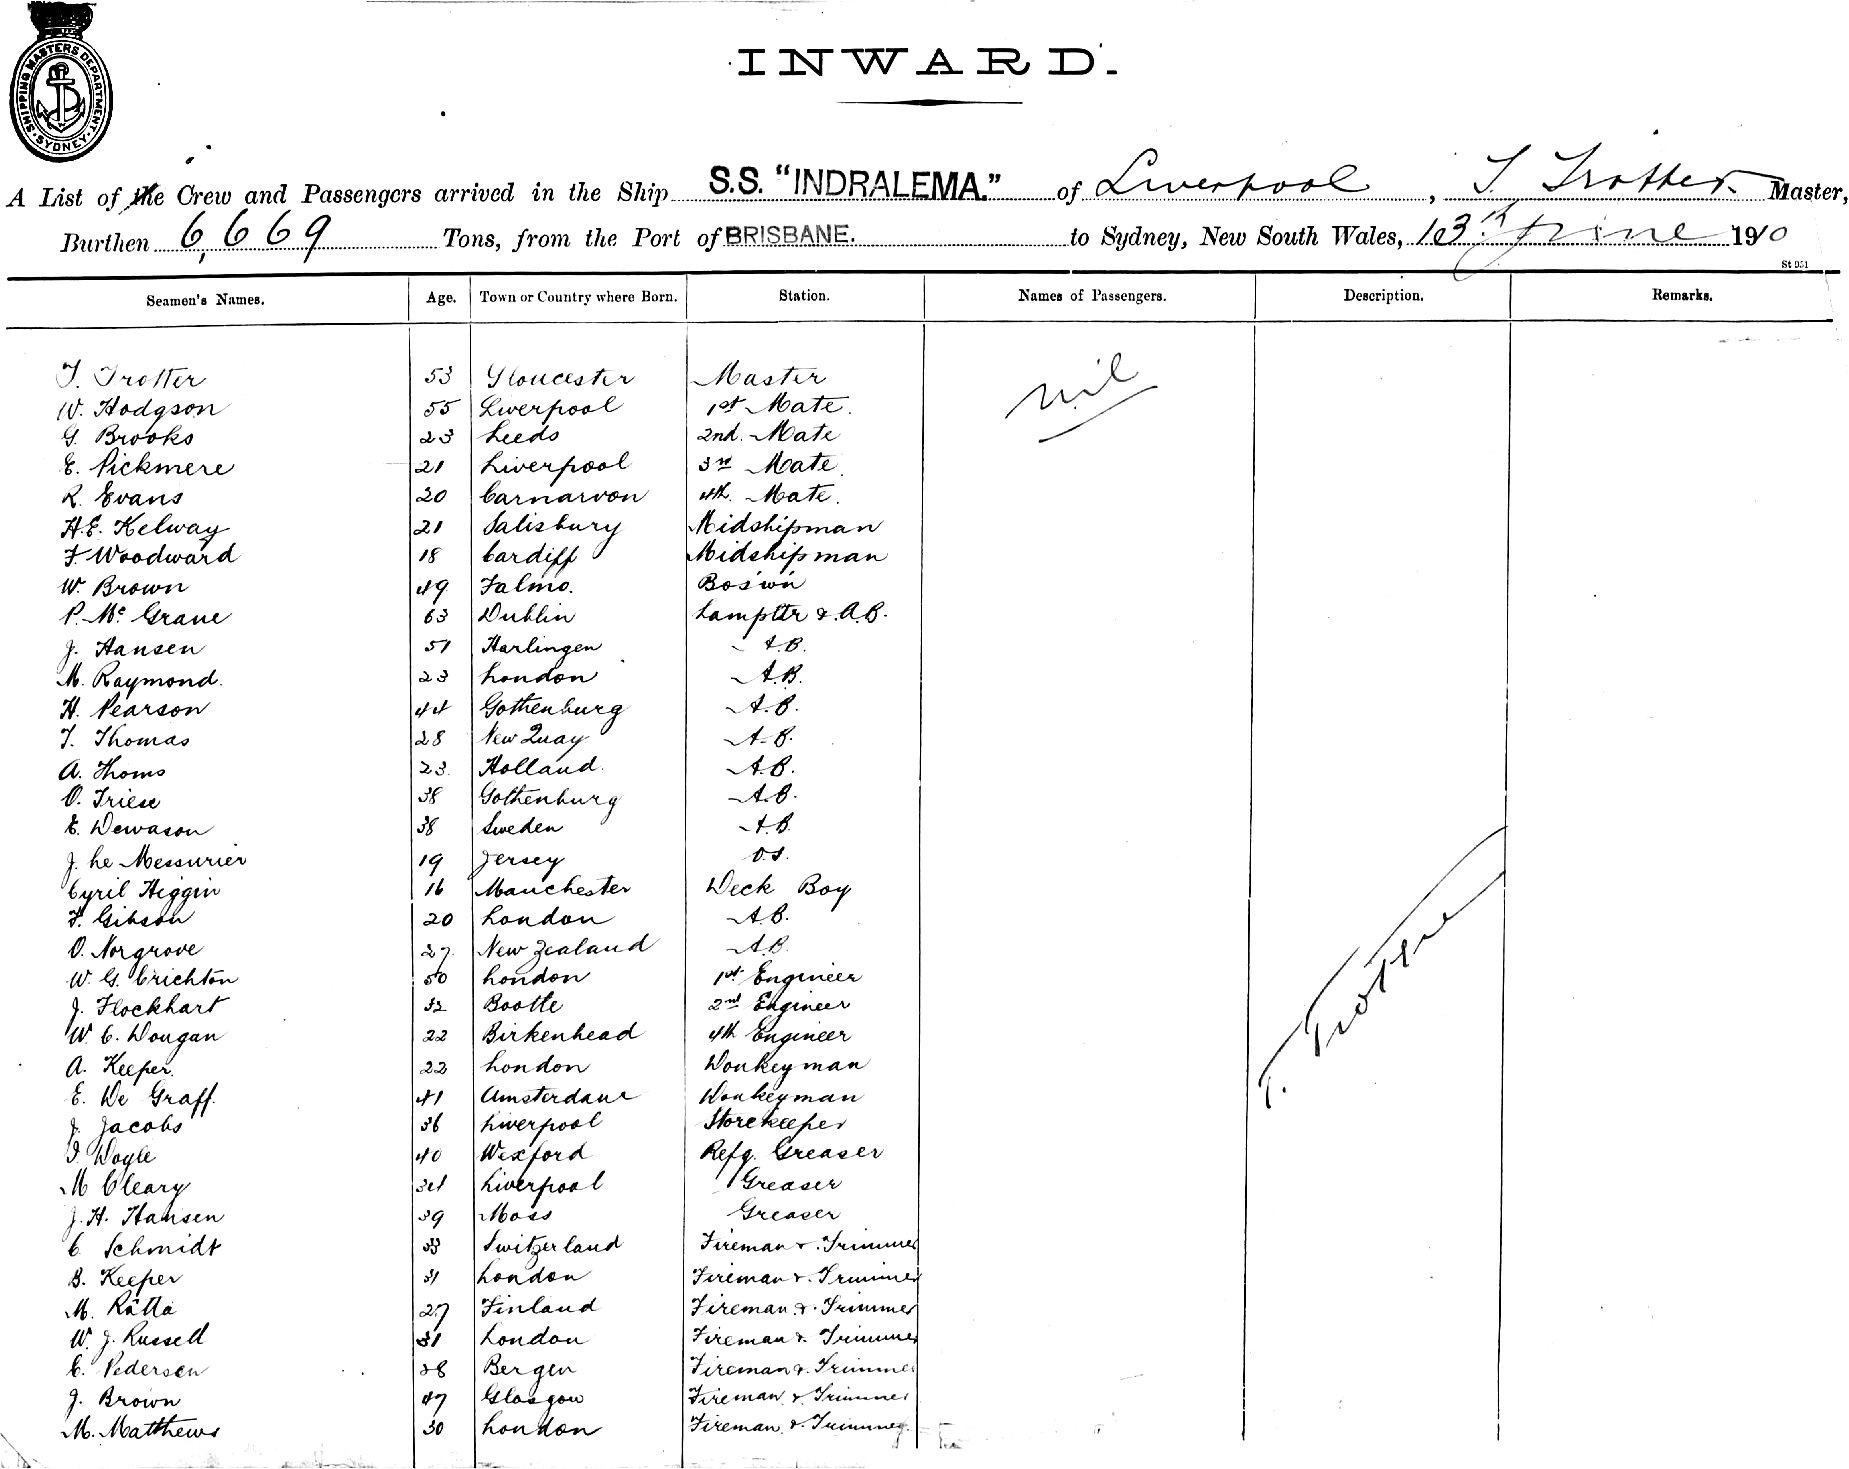 SHIPPING MASTERS DEPARTMENT · SYDNEY ·
INWARD.
A List of the Crew and Passengers arrived in the Ship S.S. "INDRALEMA." of Liverpool, T. Trotter Master,
Burthen 6,669 Tons, from the Port of BRISBANE. to Sydney, New South Wales, 13th June 1910
St 951
Seamen's Names. Age. Town or Country where Born. Station. Names of Passengers. Description. Remarks.
T. Trotter 53 Gloucester Master nil
W. Hodgson 55 Liverpool 1st Mate.
G. Brooks 23 Leeds 2nd. Mate
E. Pickmere 21 Liverpool 3rd Mate.
R. Evans 20 Carnarvon 4th. Mate.
H.E. Kelway 21 Salisbury Midshipman
F. Woodward 18 Cardiff Midshipman
W. Brown 49 Falmo. Bos'wn
P. Mc Grane 63 Dublin Lamptr & A.B.
J. Hansen 51 Harlingen A.B.
M. Raymond. 23 London A.B.
H. Pearson 44 Gothenburg A.B.
T. Thomas 28 New Quay A.B.
A. Thoms 23 Holland. A.B.
O. Friese 38 Gothenburg A.B.
E. Dewason 38 Sweden A.B.
J. Le Messurier 19 Jersey O.S.
Cyril Higgin 16 Manchester Deck Boy
F. Gibson 20 London A.B.
O. Norgrove 27. New Zealand A.B.
W. G. Crichton 50 London 1st Engineer
J. Flockhart 32 Bootle 2nd Engineer
W. C. Dougan 22 Birkenhead 4th Engineer
A. Keeper. 22 London Donkeyman
E. De Graff. 41 Amsterdam Donkeyman
J. Jacobs 36 Liverpool Storekeeper
J. Doyle 40 Wexford Refg. Greaser
M Cleary 34 Liverpool Greaser
J.H. Hansen 39 Moss Greaser
C. Schmidt 33 Switzerland Fireman & Trimmer
B. Keeper 31 London Fireman & Trimmer
M. Rätta 27 Finland Fireman & Trimmer
W. J. Russell 31 London Fireman & Trimmer
C. Pedersen 38 Bergen Fireman & Trimmer
J. Brown 47 Glasgow Fireman & Trimmer
M. Matthews 30 London Fireman & Trimmer
T. Trotter